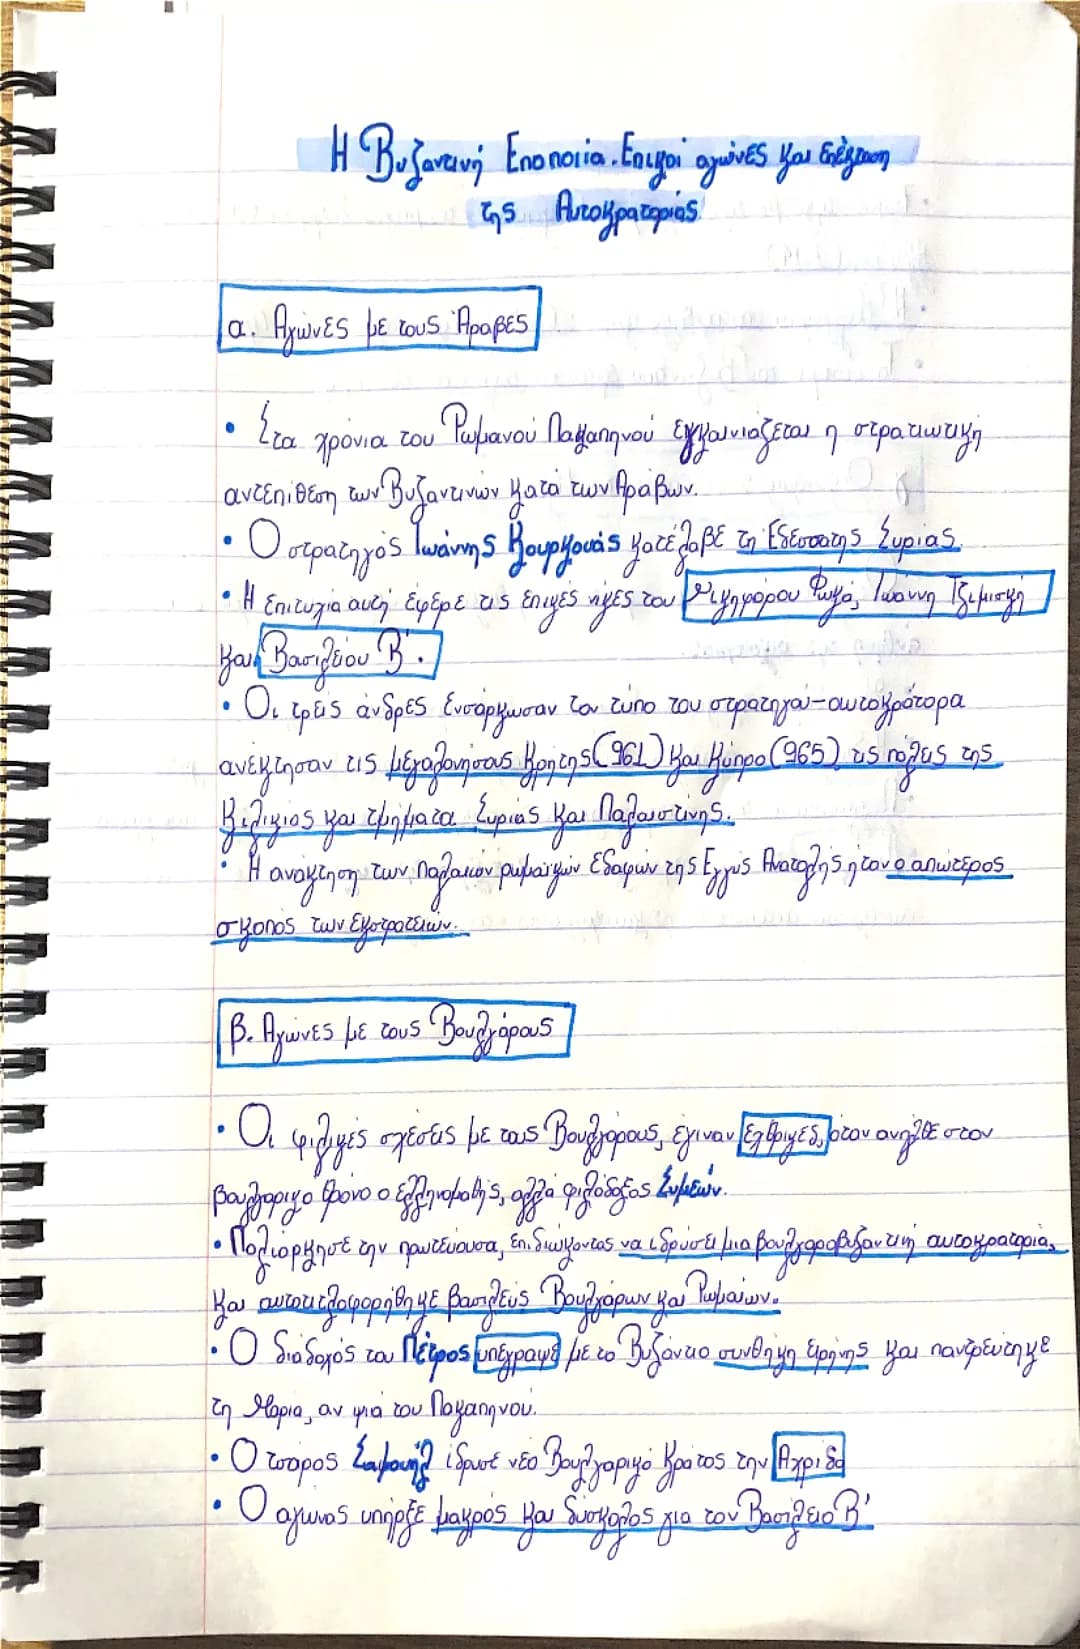 Η Βυζαντινή Εποποιία. Επικοί αγώνες και επέκταση
της Αυτοκρατορίας
α. Αγώνες με τους Άραβες
• Στα χρόνια του Ρωμανού Λακαπηνού εγκαινιάζεται η στρατιωτική
αντεπίθεση των Βυζαντινών κατά των Αράβων.
• Ο στρατηγός Ιωάννης Κουρκουάς κατέλαβε τη Εδεσσα της Συρίας.
• Η επιτυχία αυτή έφερε τις επικές νίκες του Νικηφόρου Φωκά, Ιωάννη Τζιμισκή
και Βασιλείου Β'.
• Οι τρείς άνδρες ενσάρκωσαν τον τύπο του στρατηγού-αυτοκράτορα
ανέκτησαν τις μεγαλονήσους Κρήτης (961) και Κύπρο (965), τις πόλεις της
Κιλικίας και τμήματα Συρίας και Παλαιστίνης.
• Η ανάκτηση των παλαιών ρωμαϊκών εδαφών της Εγγύς Ανατολής ήταν ο απώτερος
σκοπός των εκστρατειών.
β. Αγώνες με τους Βουλγάρους
• Οι φιλικές σχέσεις με τους Βουλγάρους, έγιναν εχθρικές, όταν ανήλθε στον
βουλγαρικό θρόνο ο ελληνομαθής, αλλά φιλόδοξος Συμεών.
• Πολιόρκησε την πρωτεύουσα, επιδιώκοντας να ιδρύσει μια βουλγαροβυζαντινή αυτοκρατορία,
και αυτοτιτλοφορήθηκε βασιλεύς Βουλγάρων και Ρωμαίων.
• Ο διάδοχός του Πέτρος υπέγραψε με το Βυζάντιο συνθήκη ειρήνης και παντρεύτηκε
τη Μαρία, αν ψιά του Λακαπηνού.
• Ο τσάρος Σαμουήλ ίδρυσε νέο Βουλγαρικό Κράτος την Αχρίδα
• Ο αγώνας υπήρξε μακρός και δύσκολος για τον Βασίλειο Β'